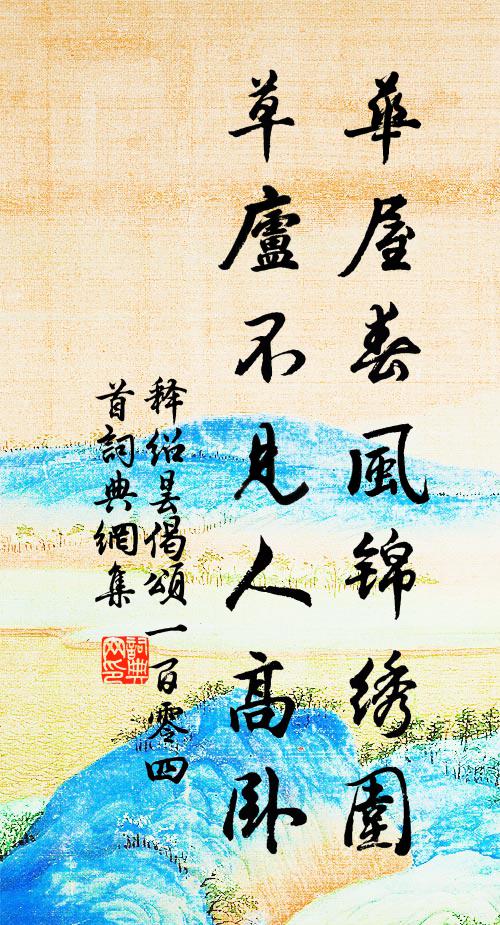 華屋春風錦綉圍
草廬不見人高卧
释绍昙偈頌一百零四
首詞典網集
詞典